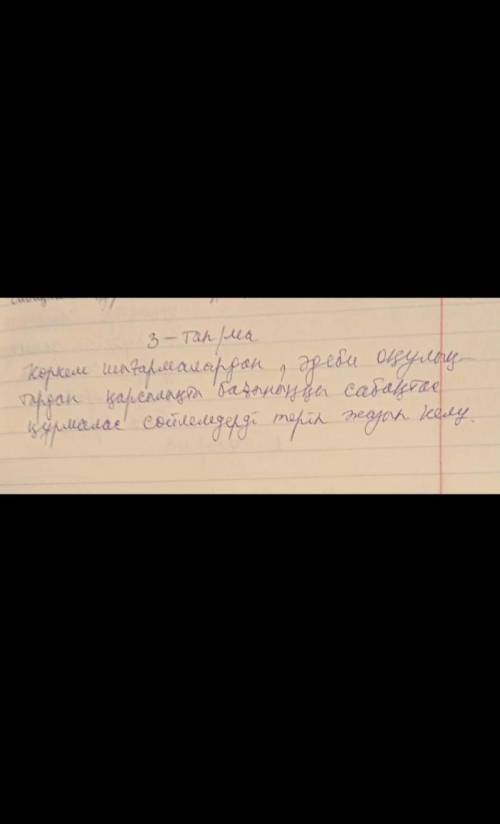 3-тап/ма
Көркем шығармалардан, әдеби оқулық-
тардан қарсылықты бағыныңқы сабақтас
құрмалас сөйлемдерді теріп жазып келу.